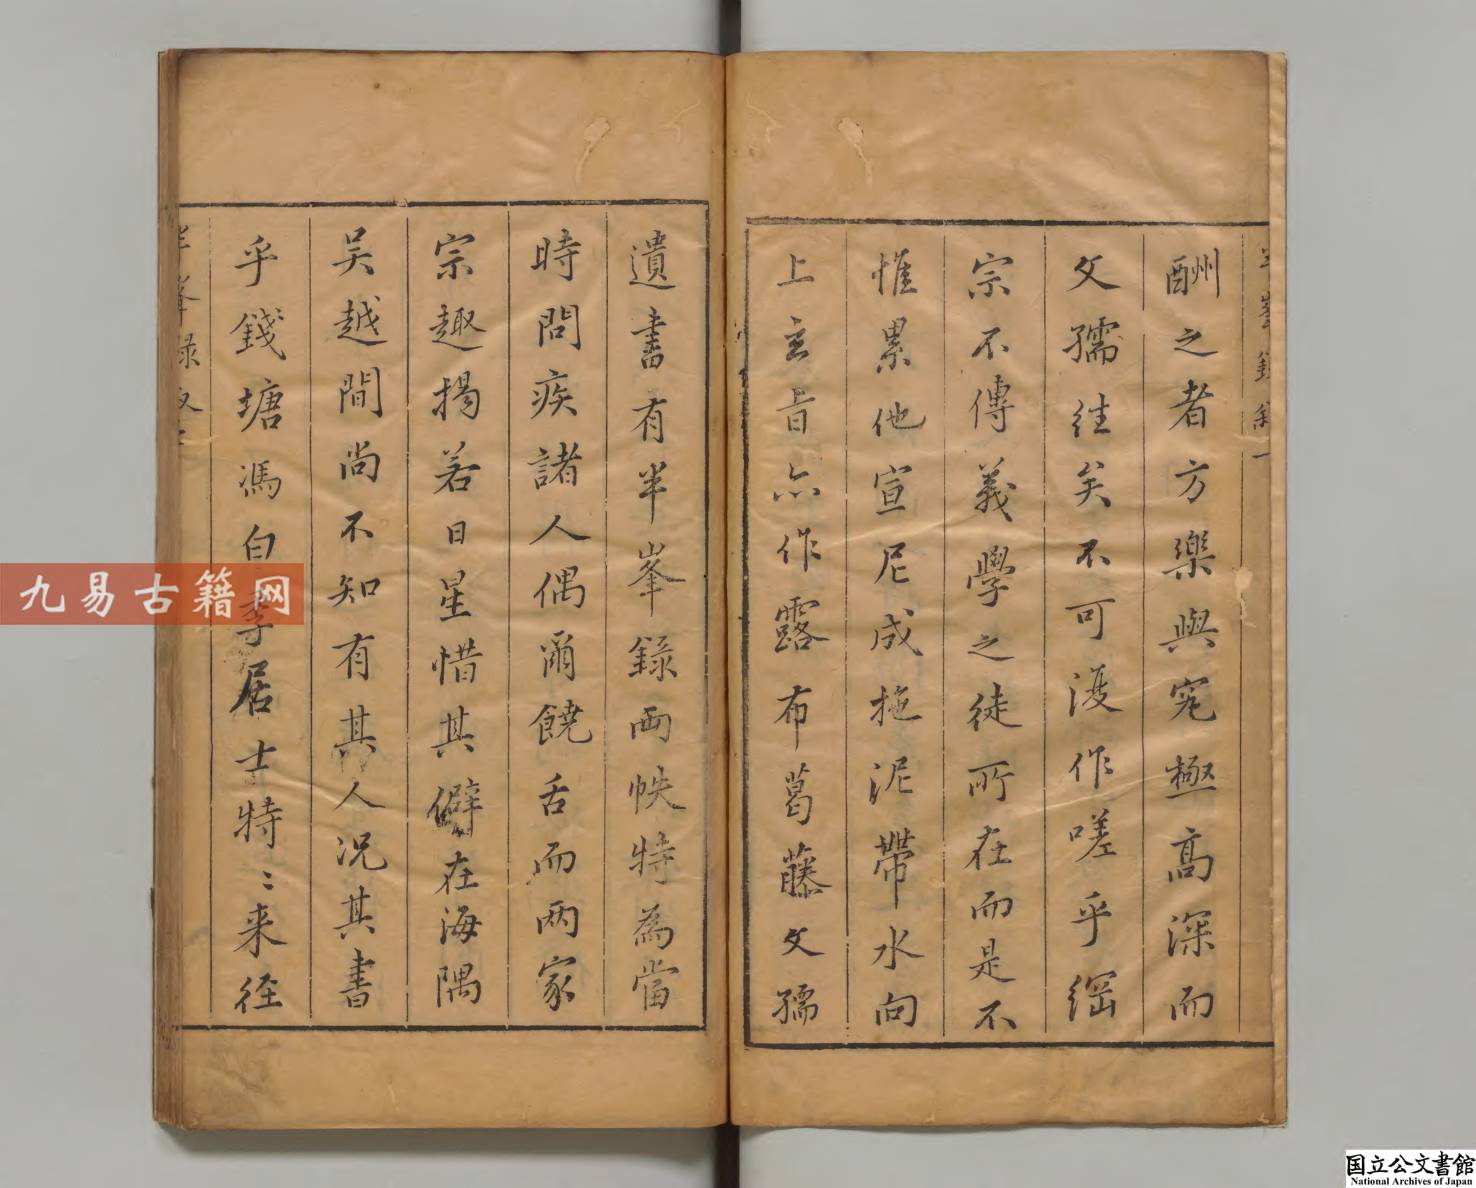 酬之者方樂與究極髙深而
文孺徃矣不可復作嗟乎綱
宗不傳義學之徒所在而是不
惟累他宣尼成拖泥帶水向
上玄旨亦作露布葛藤文孺
遺書有半峯錄兩帙特為當
時問疾諸人偶爾饒舌而兩家
宗趣揚若日星惜其僻在海隅
吴越間尚不知有其人况其書
乎錢塘馮白季居士特〻来徑
半峯錄
九易古籍网
国立公文書館
National Archives of Japan